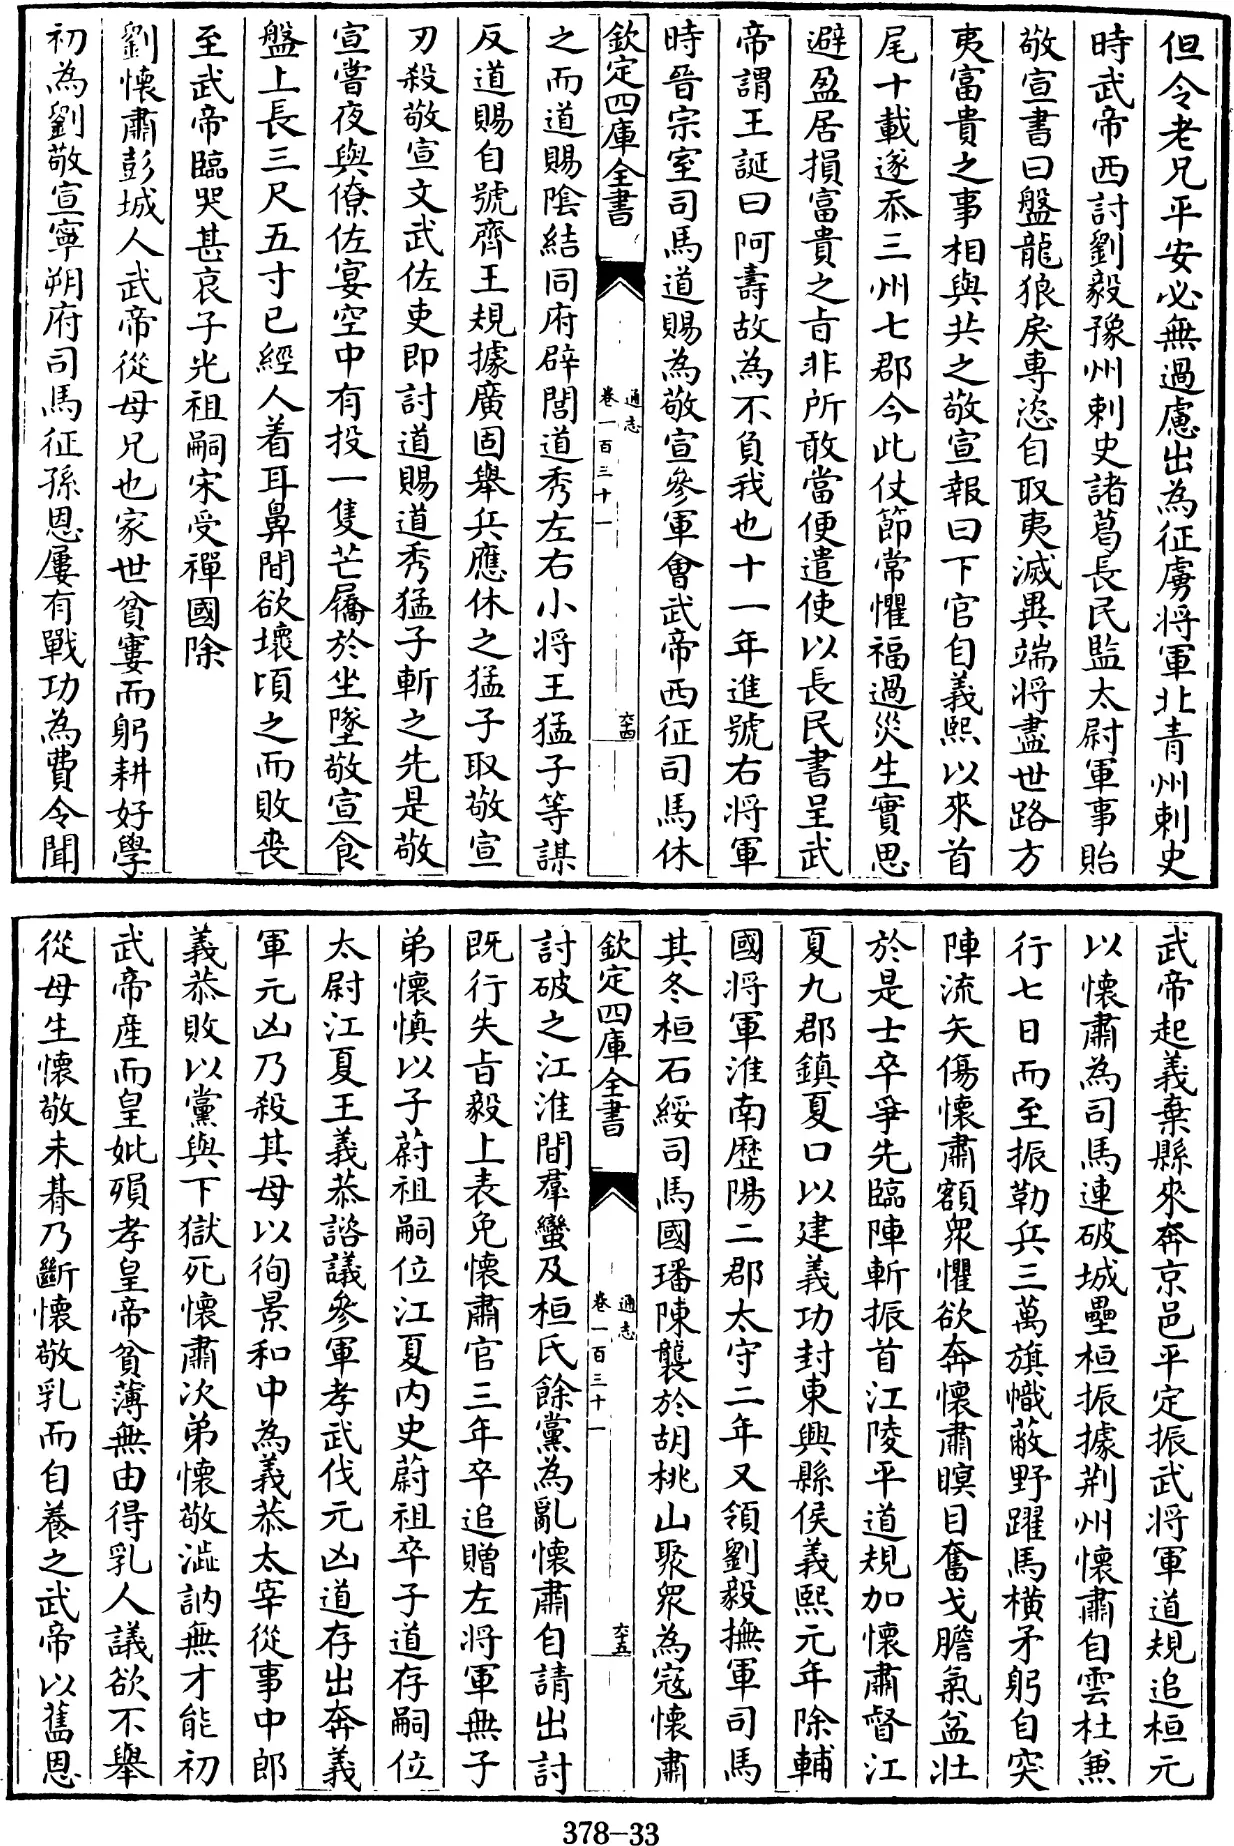 但令老兄平安必無過慮出為征虜將軍北青州刺史
時武帝西討劉毅豫州刺史諸葛長民監太尉軍事貽
敬宣書曰盤龍狼戾專恣自取夷滅異端將盡世路方
夷富貴之事相與共之敬宣報曰下官自義熙以來首
尾十載遂忝三州七郡今此仗節常懼福過災生實思
避盈居損富貴之旨非所敢當便遣使以長民書呈武
帝謂王誕曰阿壽故為不負我也十一年進號右將軍
時晉宗室司馬道賜為敬宣參軍會武帝西征司馬休
欽定四庫全書
通志
卷一百三十一
六十四
之而道賜陰結同府辟閭道秀左右小將王猛子等謀
反道賜自號齊王規據廣固舉兵應休之猛子取敬宣
刃殺敬宣文武佐吏即討道賜道秀猛子斬之先是敬
宣嘗夜與僚佐宴空中有投一隻芒屩於坐墜敬宣食
盤上長三尺五寸已經人着耳鼻間欲壞頃之而敗喪
至武帝臨哭甚哀子光祖嗣宋受禪國除
劉懷肅彭城人武帝從母兄也家世貧窶而躬耕好學
初為劉敬宣寧朔府司馬征孫恩屢有戰功為費令聞
武帝起義棄縣來奔京邑平定振武將軍道規追桓元
以懷肅為司馬連破城壘桓振據荆州懷肅自雲杜兼
行七日而至振勒兵三萬旗幟蔽野躍馬橫矛躬自突
陣流矢傷懷肅額衆懼欲奔懷肅瞑目奮戈膽氣益壯
於是士卒爭先臨陣斬振首江陵平道規加懷肅督江
夏九郡鎮夏口以建義功封東興縣侯義熙元年除輔
國將軍淮南歴陽二郡太守二年又領劉毅撫軍司馬
其冬桓石綏司馬國璠陳襲於胡桃山聚衆為寇懷肅
欽定四庫全書
通志
卷一百三十一
六十五
討破之江淮間羣蠻及桓氏餘黨為亂懷肅自請出討
既行失旨毅上表免懷肅官三年卒追贈左將軍無子
弟懷慎以子蔚祖嗣位江夏内史蔚祖卒子道存嗣位
太尉江夏王義恭諮議參軍孝武伐元凶道存出奔義
軍元凶乃殺其母以徇景和中為義恭太宰從事中郎
義恭敗以黨與下獄死懷肅次弟懷敬澁訥無才能初
武帝産而皇妣殞孝皇帝貧薄無由得乳人議欲不舉
從母生懷敬未朞乃斷懷敬乳而自養之武帝以舊恩
378-33